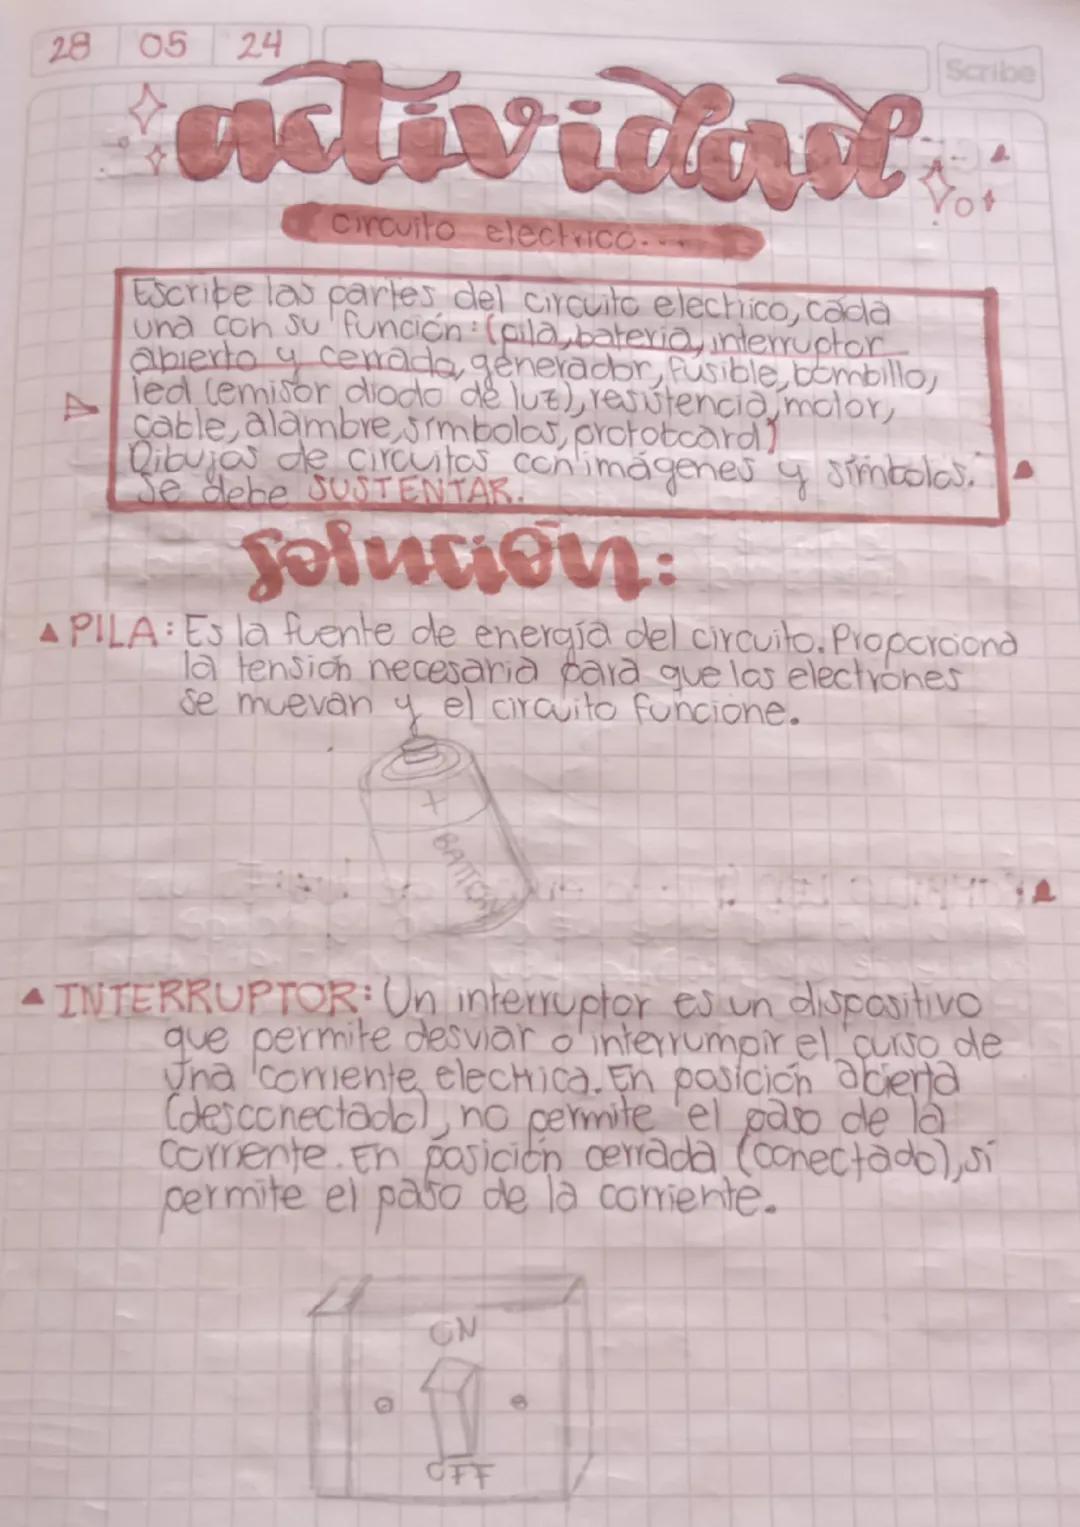 28 05 24
Scribe
actividad
circuito electrico...
Escribe las partes del circuito electrico, cada
una con su función: (pila, bateria, interruptor
abierto y cerrado, generador, fusible, bombillo,
led (emisor diodo de luz), resistencia, motor,
cable, alambre, simbolos, protoboard)
Dibujos de circuitos con imágenes y símbolos.
Se debe SUSTENTAR.
Solución:
PILA: Es la fuente de energía del circuito. Proporciona
la tensión necesaria para que los electrones
se muevan y el circuito funcione.
+
INTERRUPTOR: Un interruptor es un dispositivo
que permite desviar o interrumpir el curso de
una corriente electrica. En posición abierta
(desconectado), no permite el paso de la
corriente. En posición cerrada (conectado), si
permite el paso de la corriente.
ON
OFF